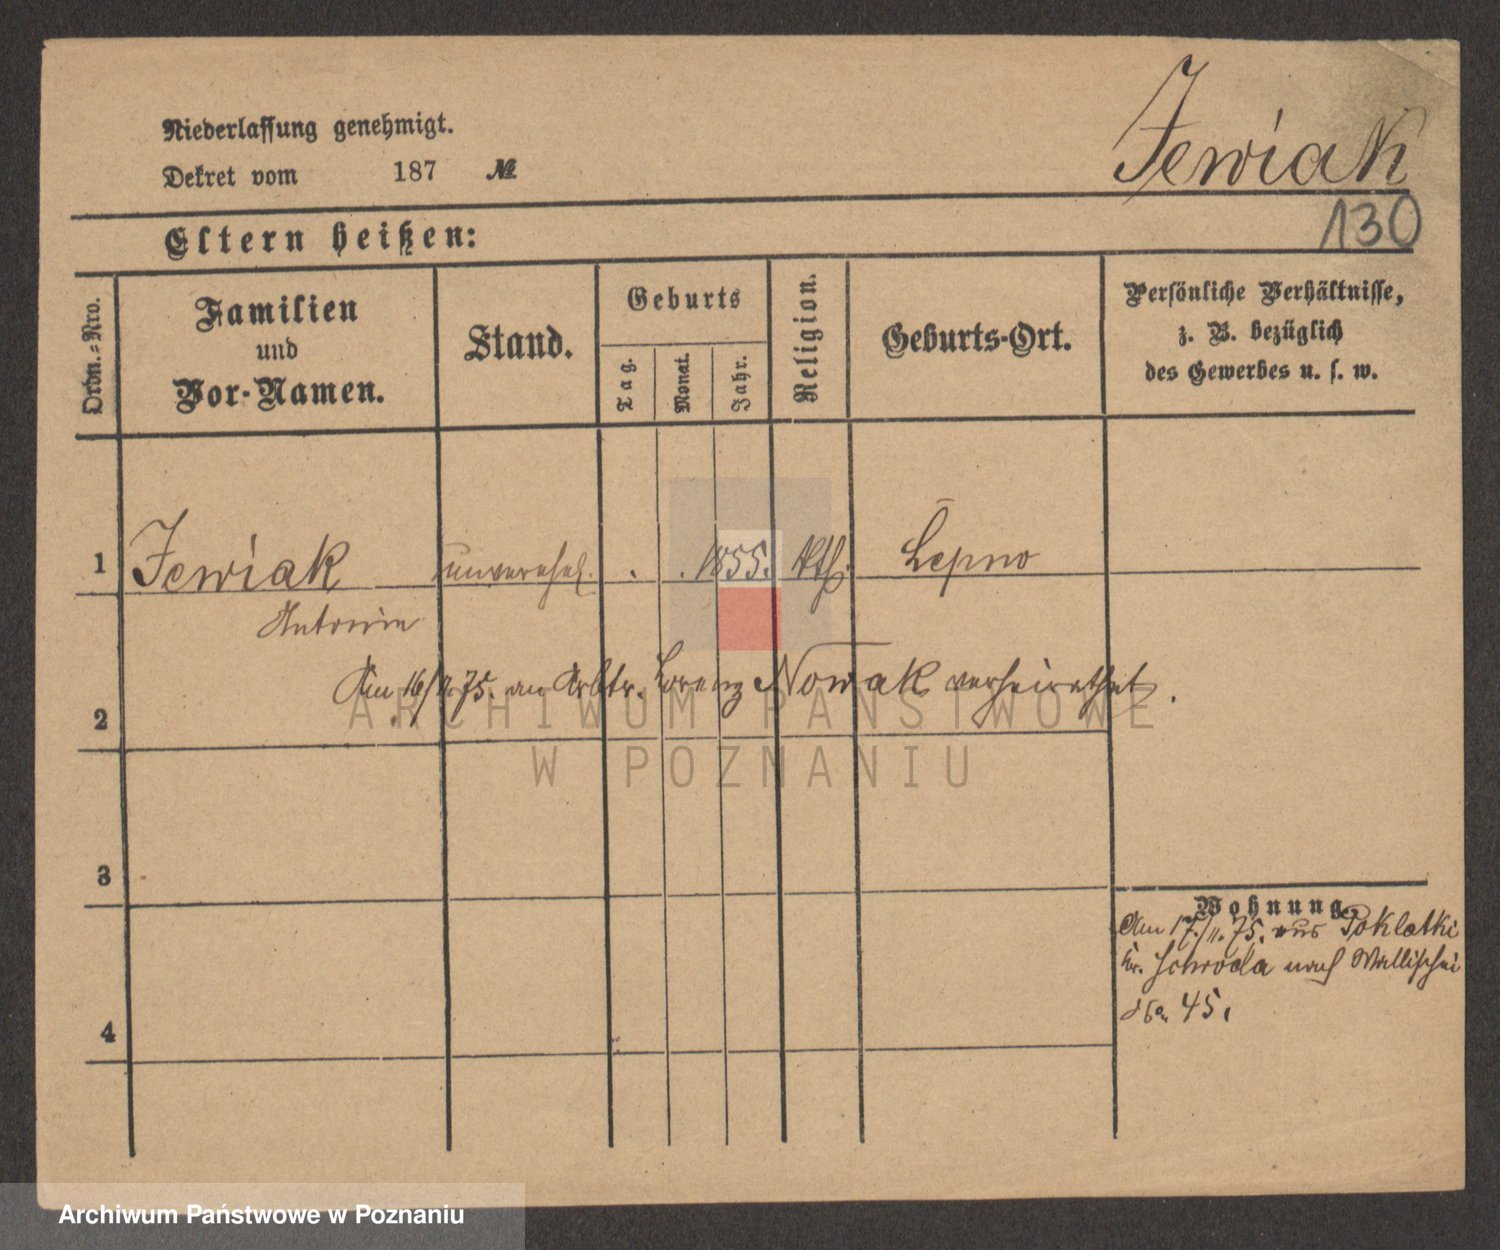 Jewiak
Niederlassung genehmigt.
Dekret vom 187 №
130
Eltern heißen:
Ordn.-Nro.
Familien
und
Vor-Namen.
Stand.
Geburts
Tag.
Monat.
Jahr.
Religion.
Geburts-Ort.
Persönliche Verhältnisse,
z. B. bezüglich
des Gewerbes u. s. w.
1 Jewiak unverehel. . . 1855. kth. Lepno
Antonie
Am 16/11.75. an Arbtr. Lorenz Nowak verheirathet.
2
3
4
Wohnung
Am 17./11.75. aus Poklatki
Kr. Schroda nach Wallischei
45.
ARCHIWUM PAŃSTWOWE
W POZNANIU
Archiwum Państwowe w Poznaniu